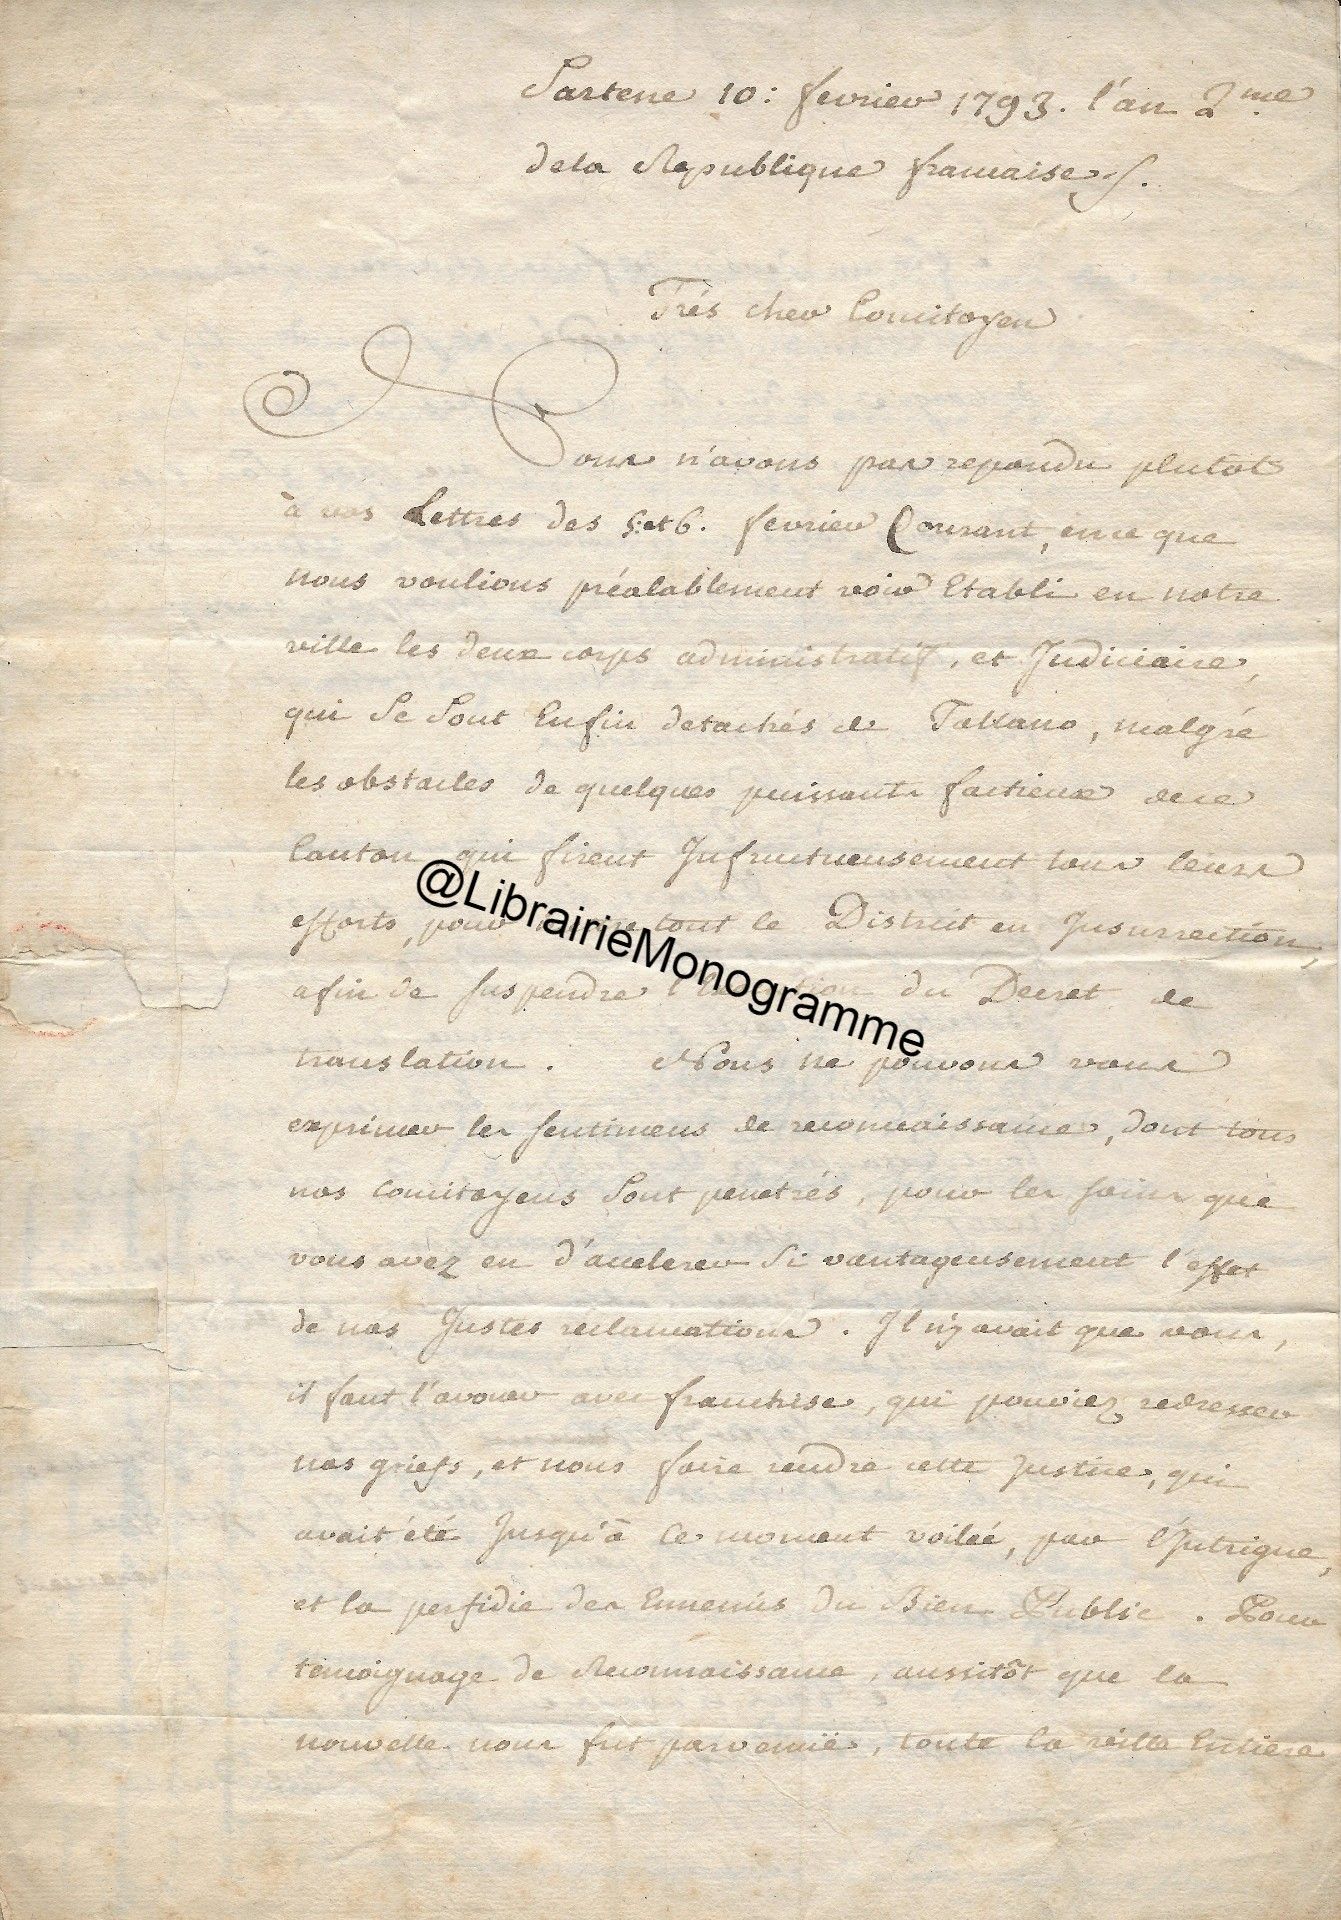 Sartene 10: fevrier 1793. l'an 2.me
dela Republique francaise
Trés cher Concitoyen
Nous n'avons pas repondu plutot
à vos Lettres des 5. et 6. fevrier Courant, ence que
nous voulions préalablement voir Etabli en notre
ville les deux corps administratif, et Judiciaire,
qui Se Sont Enfin detachés de Tallano, malgré
les obstacles de quelques puissants factieux dece
Canton qui firent Infructueusement tous leurs
efforts, pour tout le District en Insurrection,
afin de suspendre du Decret de
translation. Nous ne pouvons vous
exprimer les sentimens de reconnaissance, dont tous
nos concitoyens Sont penetrés, pour les soins que
vous avez eu d'accelerer Si vantageusement l'effet
de nos Justes reclamations. Il n'y avait que vous,
il faut l'avouer avec franchise, qui pouviez redresser
nos griefs, et nous faire rendre cette Justice, qui
avait été Jusqu'à ce moment voilée, par l'Intrigue,
et la perfidie des Ennemis du Bien Public. Pour
temoignage de Reconnaissance, aussitôt que la
nouvelle nous fut parvenüe, toute la ville Entiere
@LibrairieMonogramme